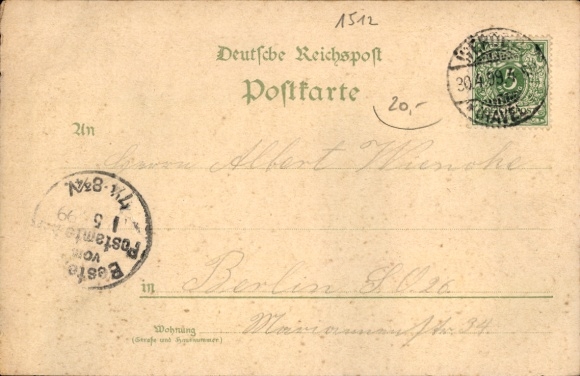 1512
Deutsche Reichspost
Postkarte
30.4.99
(HAVEL)
20,-
An
Herrn Albert Wiencke
Bestellt
vom
Postamte
1 5 99
7¼-8¾V.
in Berlin SO 26
Mariannenstr. 34
Wohnung
(Straße und Hausnummer)